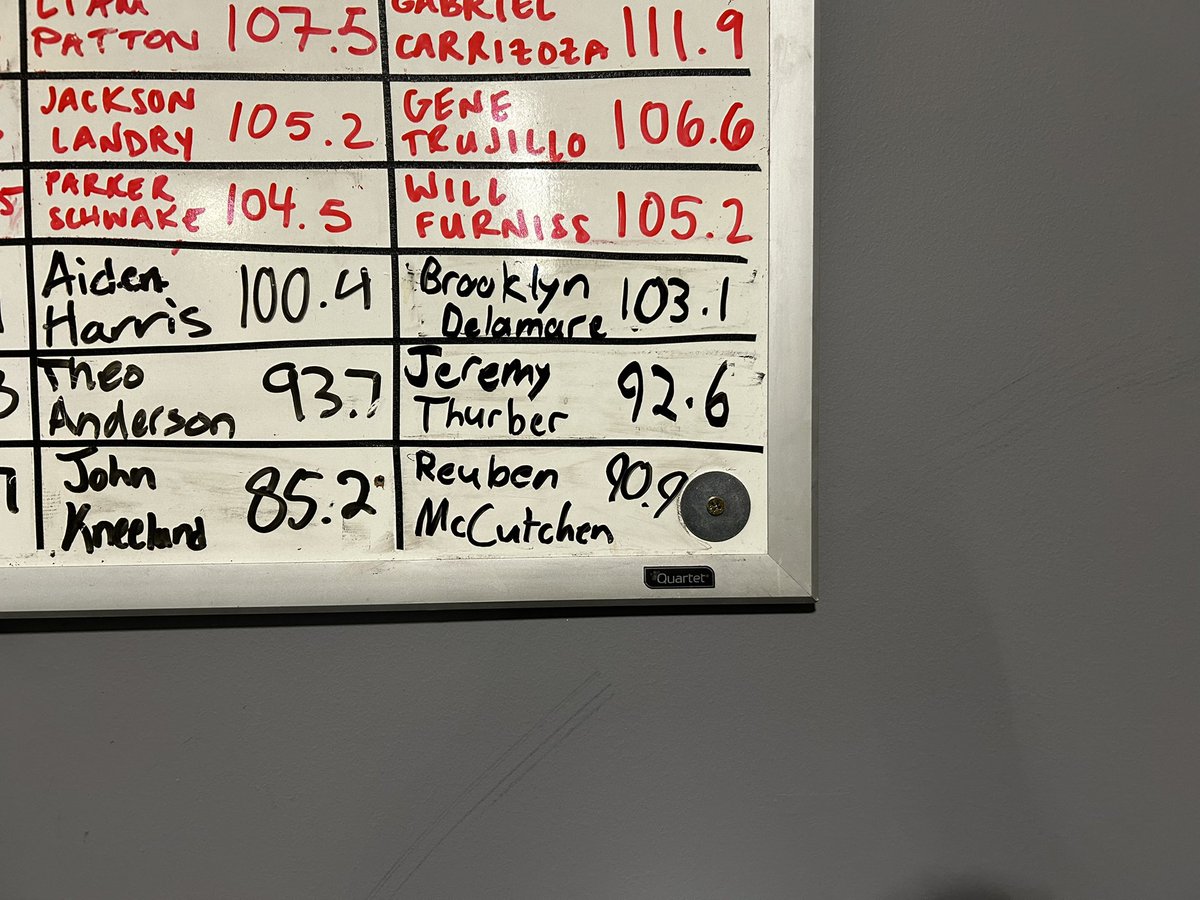 LIAM
PATTON 107.5
GABRIEL
CARRIZOZA 111.9
JACKSON
LANDRY 105.2
GENE
TRUJILLO 106.6
PARKER
SCHWAKE 104.5
WILL
FURNISS 105.2
Aiden
Harris 100.4
Brooklyn
Delamare 103.1
Theo
Anderson 93.7
Jeremy
Thurber 92.6
John
Kneeland 85.2
Reuben
McCutchen 90.9
Quartet